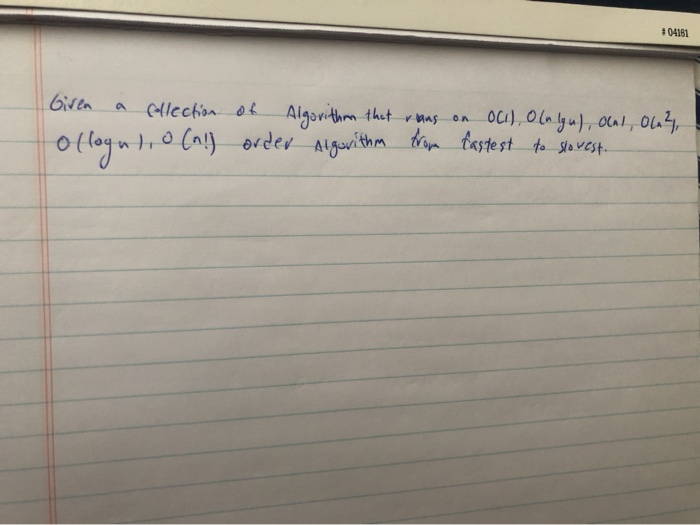 # 04161
Given a Collection of Algorithm that runs on O(1), O(n lgn), O(n), O(n²),
O(logn), O(n!) order Algorithm from fastest to slowest.